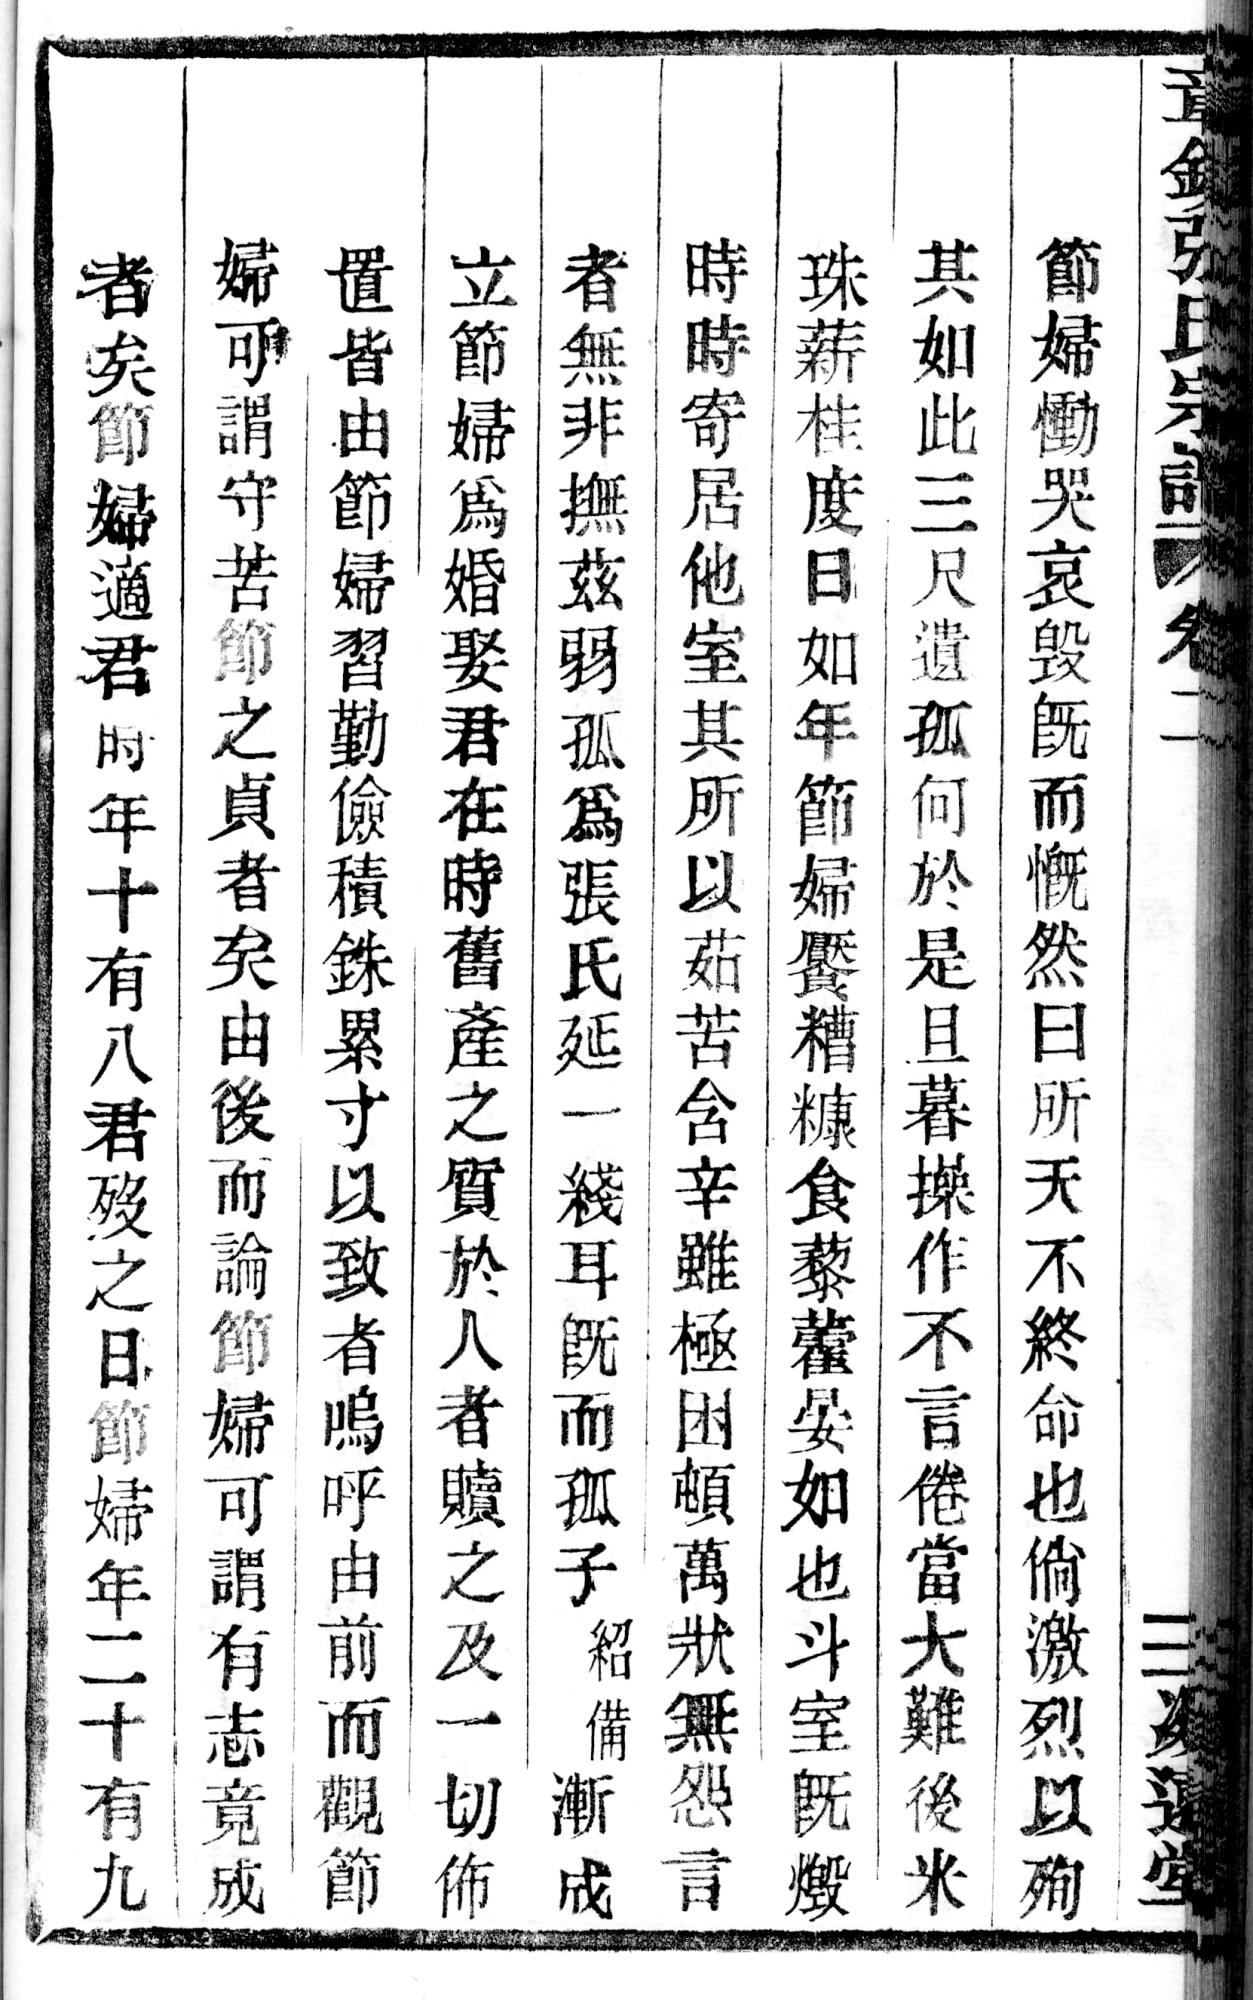 張氏宗譜 卷二
節婦慟哭哀毀既而慨然曰所天不終命也倘激烈以殉
其如此三尺遺孤何於是旦暮操作不言倦當大難後米
珠薪桂度日如年節婦饜糟糠食藜藿晏如也斗室既燬
時時寄居他室其所以茹苦含辛雖極困頓萬狀無怨言
者無非撫茲弱孤爲張氏延一綫耳既而孤子紹備漸成
立節婦爲婚娶君在時舊產之質於人者贖之及一切佈
置皆由節婦習勤儉積銖累寸以致者嗚呼由前而觀節
婦可謂守苦節之貞者矣由後而論節婦可謂有志竟成
者矣節婦適君時年十有八君歿之日節婦年二十有九